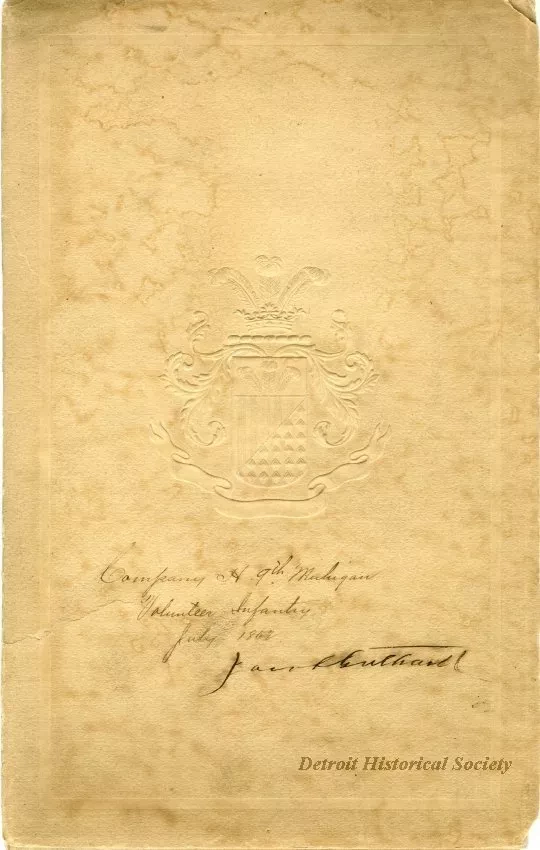 Company H 9th Michigan
Volunteer Infantry
July 186
Detroit Historical Society